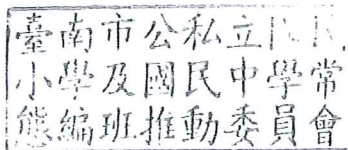 臺南市公私立
小學及國民中學常
態編班推動委員會